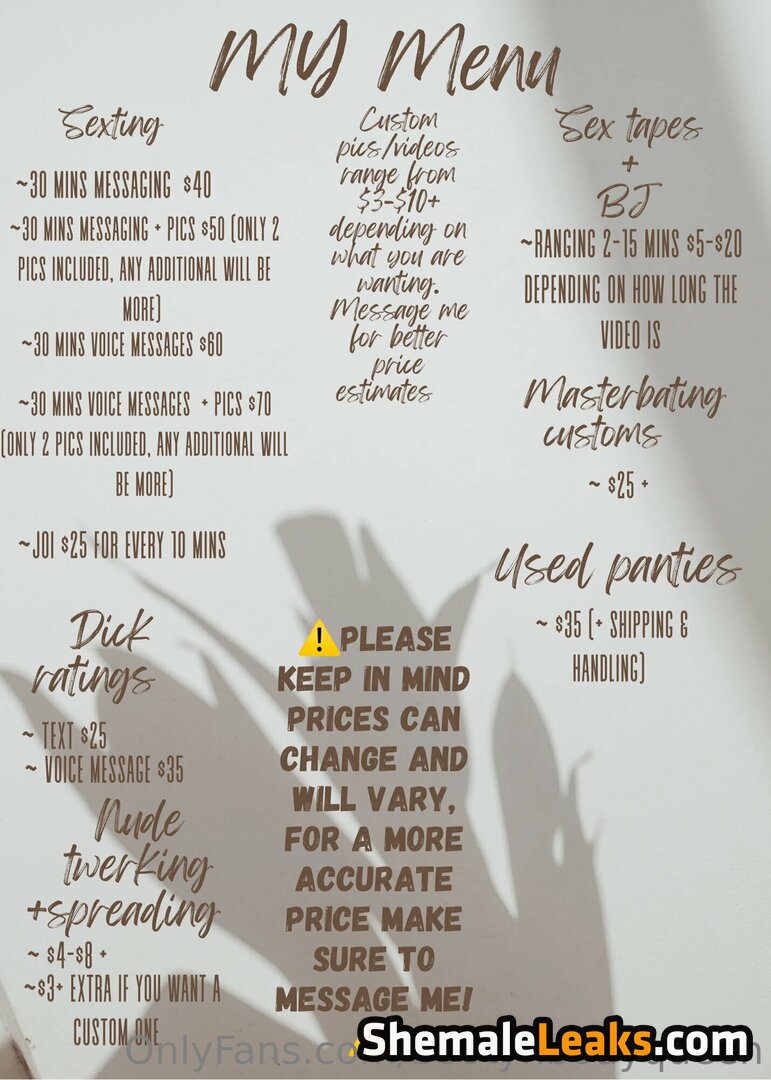 MY Menu
Sexting
~30 MINS MESSAGING $40
~30 MINS MESSAGING + PICS $50 (ONLY 2
PICS INCLUDED, ANY ADDITIONAL WILL BE
MORE)
~30 MINS VOICE MESSAGES $60
~30 MINS VOICE MESSAGES + PICS $70
(ONLY 2 PICS INCLUDED, ANY ADDITIONAL WILL
BE MORE)
~JOI $25 FOR EVERY 10 MINS
Dick
ratings
~ TEXT $25
~ VOICE MESSAGE $35
Nude
twerking
+spreading
~ $4-$8 +
~$3+ EXTRA IF YOU WANT A
CUSTOM ONE
Custom
pics/videos
range from
$3-$10+
depending on
what you are
wanting.
Message me
for better
price
estimates
⚠️PLEASE
KEEP IN MIND
PRICES CAN
CHANGE AND
WILL VARY,
FOR A MORE
ACCURATE
PRICE MAKE
SURE TO
MESSAGE ME!
Sex tapes
+
BJ
~RANGING 2-15 MINS $5-$20
DEPENDING ON HOW LONG THE
VIDEO IS
Masterbating
customs
~ $25 +
Used panties
~ $35 (+ SHIPPING &
HANDLING)
ShemaleLeaks.com